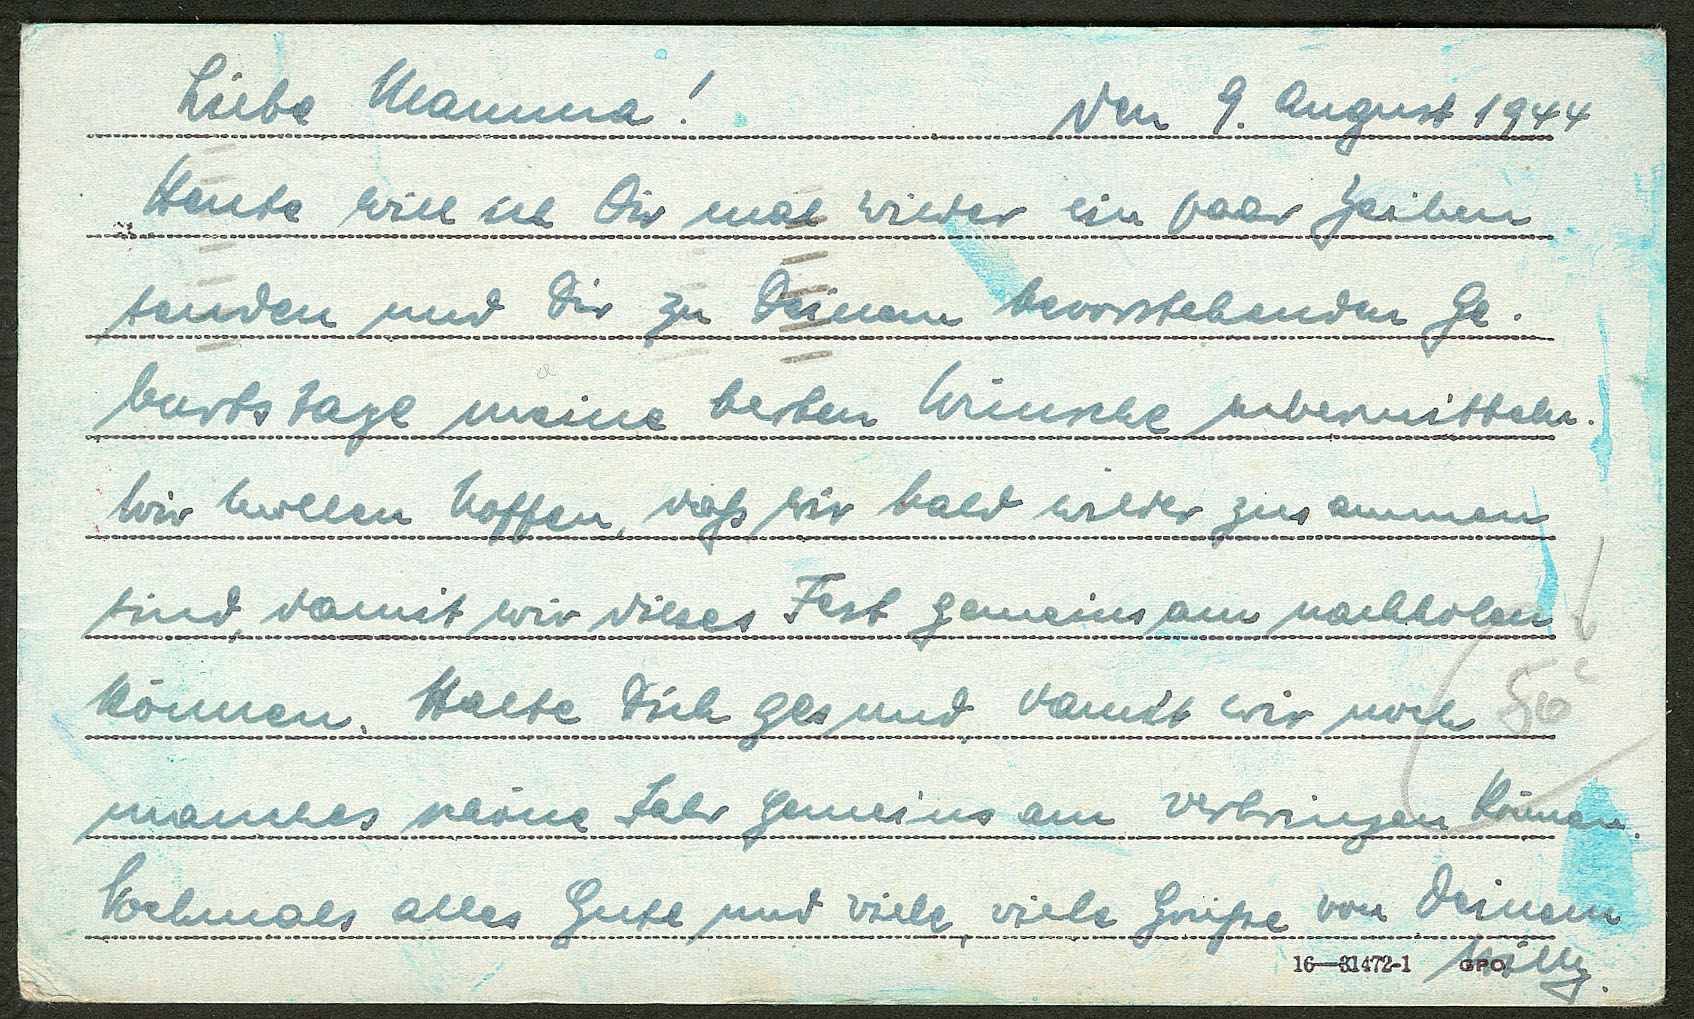 Liebe Mamma! Den 9. August 1944
Heute will ich Dir mal wieder ein paar Zeilen
senden und Dir zu Deinem bevorstehenden Ge-
burtstage meine besten Wünsche uebermitteln.
Wir wollen hoffen, daß wir bald wieder zusammen
sind, damit wir dieses Fest gemeinsam nachholen
können. Halte Dich gesund, damit wir noch
manches schöne Jahr gemeinsam verbringen können.
Nochmals alles Gute und viele, viele Grüße von Deinem
16—81472-1 GPO Willy.